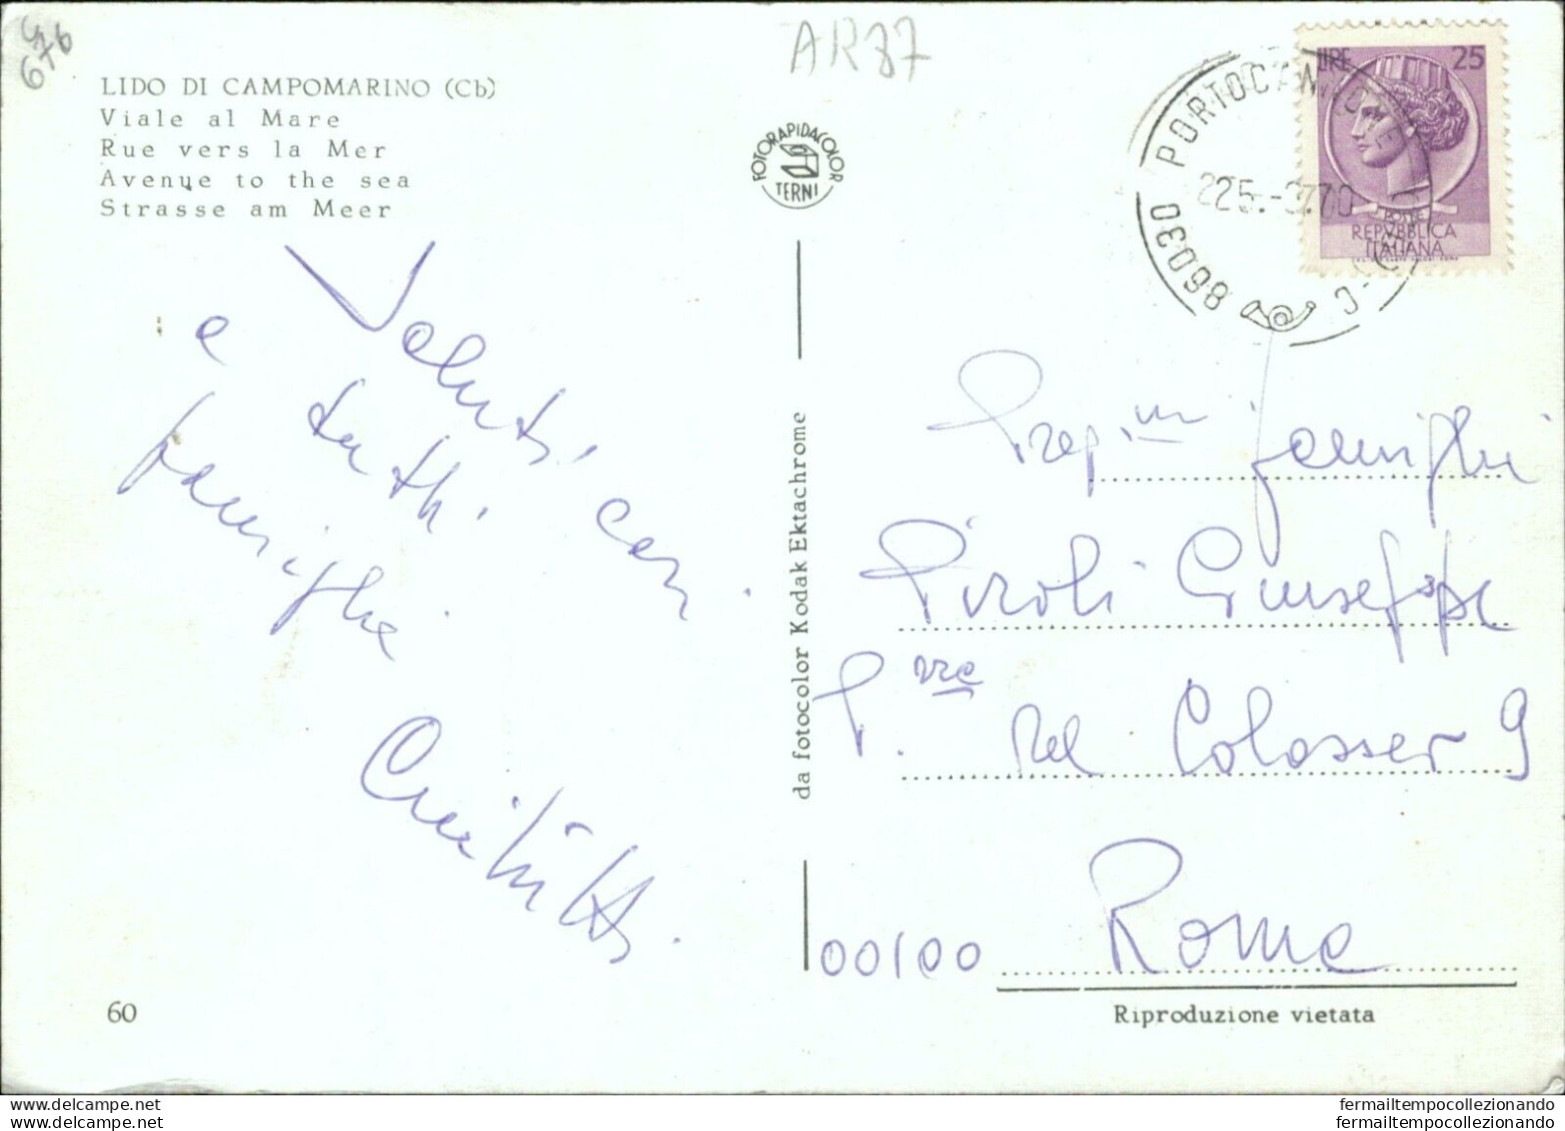 G
676
AR87
LIDO DI CAMPOMARINO (Cb)
Viale al Mare
Rue vers la Mer
Avenue to the sea
Strasse am Meer
FOTORAPIDACOLOR
TERNI
LIRE 25
POSTE
REPVBBLICA
ITALIANA
86030 PORTOCANNONE
Saluti cari
a tutti
famiglia
da fotocolor Kodak Ektachrome
Preg.ma famiglia
Piroli Giuseppe
del Colosseo 9
00100 Roma
60
Riproduzione vietata
www.delcampe.net
fermailtempocollezionando
fermailtempocollezionando